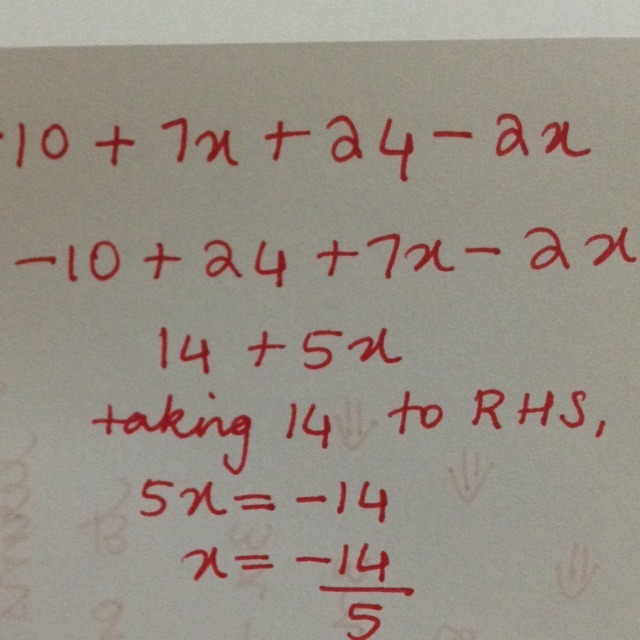 -10 + 7x + 24 - 2x
-10 + 24 + 7x - 2x
14 + 5x
taking 14 to RHS,
5x = -14
x = -14
5